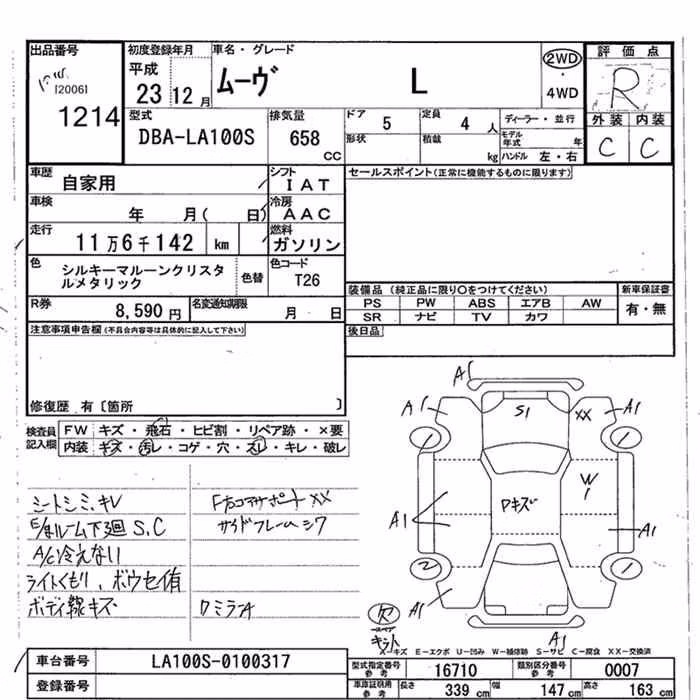 出品番号 初度登録年月 車名・グレード 評価点
[2006] 平成 ムーヴ L 2WD ・ 4WD R
1214 23 12月 外装 内装
型式 排気量 ドア 定員 ディーラー・並行 C C
DBA-LA100S 658 cc 5 4人 モデル年式 年
形状 積載 kg ハンドル 左・右
車歴 自家用 シフト IAT セールスポイント(正常に機能するものに限ります)
車検 年 月( 日) 冷房 AAC
走行 11万6千142 km 燃料 ガソリン
色 シルキーマルーンクリスタ 色替 色コード T26
ルメタリック
装備品 (純正品に限り○をつけてください) 新車保証書
R券 8,590円 名変通知期限 月 日 PS PW ABS エアB AW 有・無
SR ナビ TV カワ
注意事項申告欄(不具合内容等は具体的に記入して下さい) 後日品
修復歴 有〔箇所 〕
検査員記入欄 FW キズ・飛石・ヒビ割・リペア跡・×要
内装 キズ・汚レ・コゲ・穴・スレ・キレ・破レ
A1
A1 S1 XX A1
シートシミ、キレ
E/ルーム下廻 S.C サイドフレームシワ
A/C冷えない
ライトくもり、ボウセイ有
ボディ線キズ ワミラA
1 1
Pキズ W1
A1 A1
2 1
A1
欠 スペア キット A1
A-キズ E-エクボ U-凹み W-補修跡 S-サビ C-腐食 XX-交換済
車台番号 LA100S-0100317 型式指定番号参考 16710 類別区分番号参考 0007
登録番号 車庫証明用参考 長さ 339cm 幅 147cm 高さ 163cm